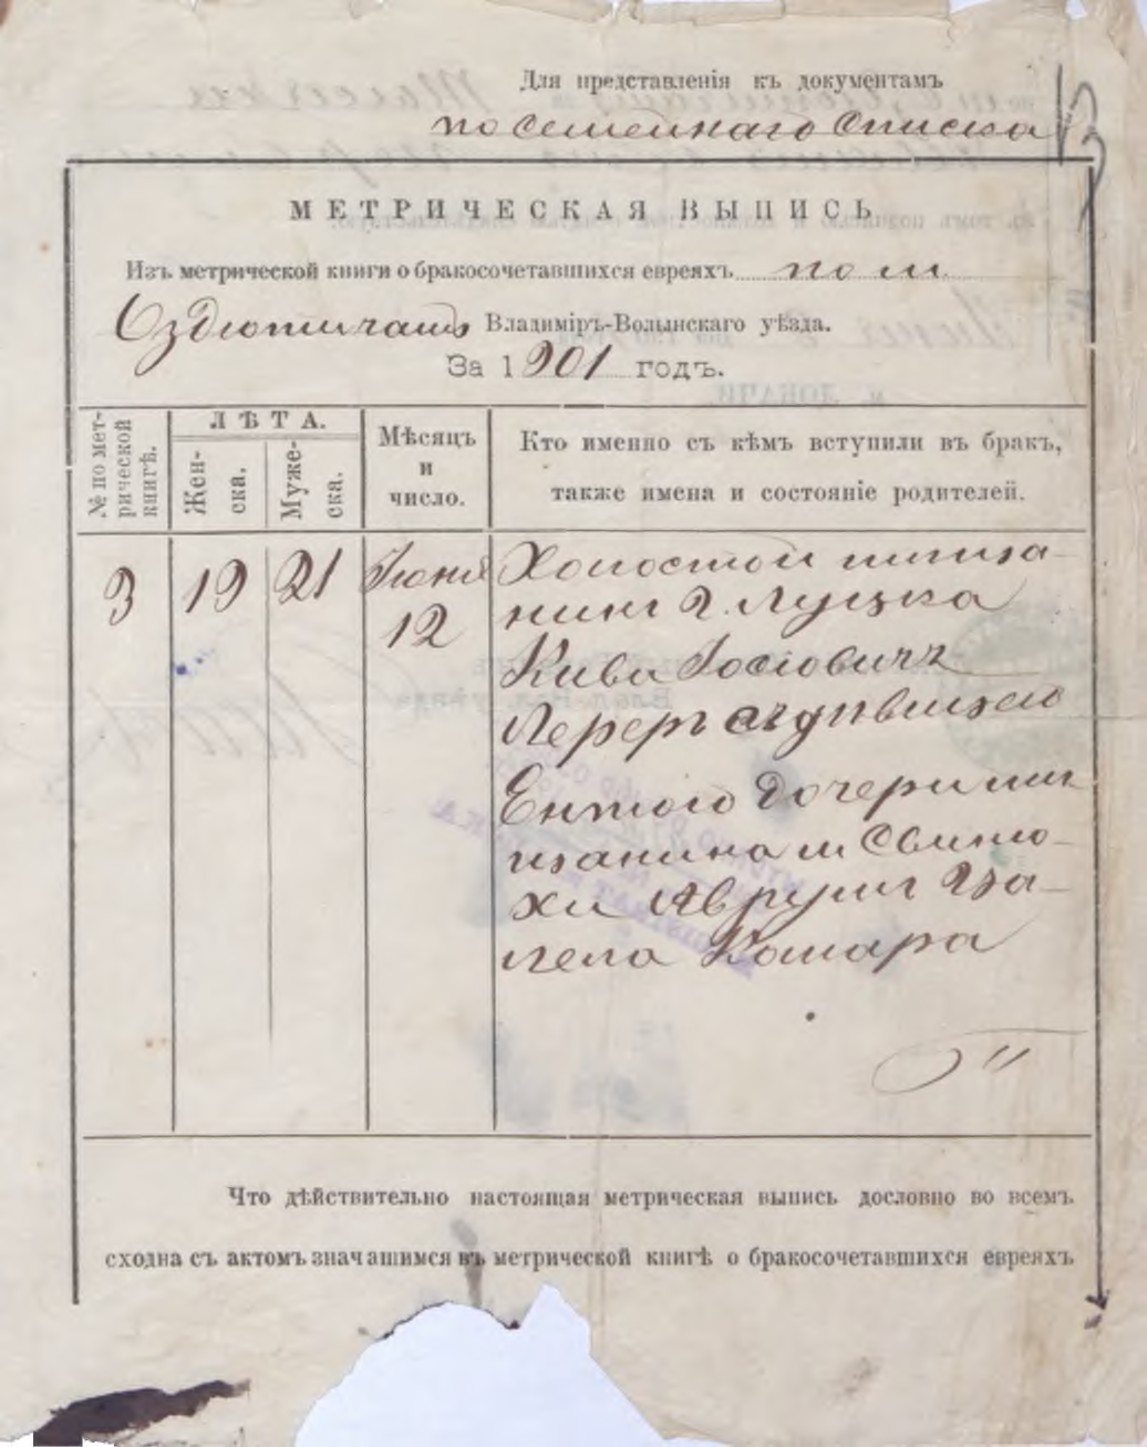 Для представленія къ документамъ
посемейнаго списка
МЕТРИЧЕСКАЯ ВЫПИСЬ
Изъ метрической книги о бракосочетавшихся евреяхъ по м.
Оздютичамъ Владиміръ-Волынскаго уѣзда.
За 1901 годъ.
№ по метрической книгѣ.
ЛѢТА.
Женска.
Мужеска.
Мѣсяцъ
и
число.
Кто именно съ кѣмъ вступили въ бракъ,
также имена и состояніе родителей.
3 19 21 Іюня
12
Холостой мѣща-
нинъ г. Луцка
Кива Іосіовичъ
Лереръ съ дѣвицею
Ентою дочерь мѣ
щанина м Свиню-
хи Аврумъ Іза-
Комара
Что дѣйствительно настоящая метрическая выпись дословно во всемъ
сходна съ актомъ значащимся въ метрической книгѣ о бракосочетавшихся евреяхъ